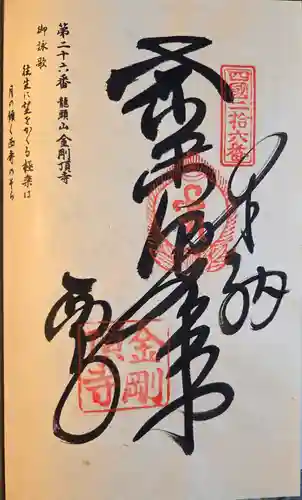 四國二拾六番
奉納
薬師如来
金剛頂寺
第二十六番 龍頭山 金剛頂寺
御詠歌
往生に望をかくる極楽は
月の傾く西寺のそら